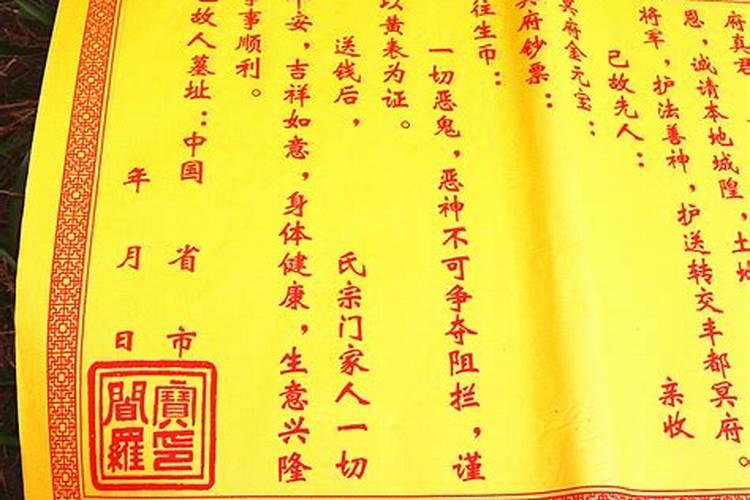 府真君
恩，诚请本地城隍，土地
将军，护法善神，护送转交丰都冥府。
已故先人：　亲收
冥府金元宝：
冥府钞票：
往生币：
一切恶鬼，恶神不可争夺阻拦，谨
以黄表为证。
送钱后，　氏宗门家人一切
平安，吉祥如意，身体健康，生意兴隆
事事顺利。
已故人墓址：中国　省　市
年　月　日
寶印
閻羅